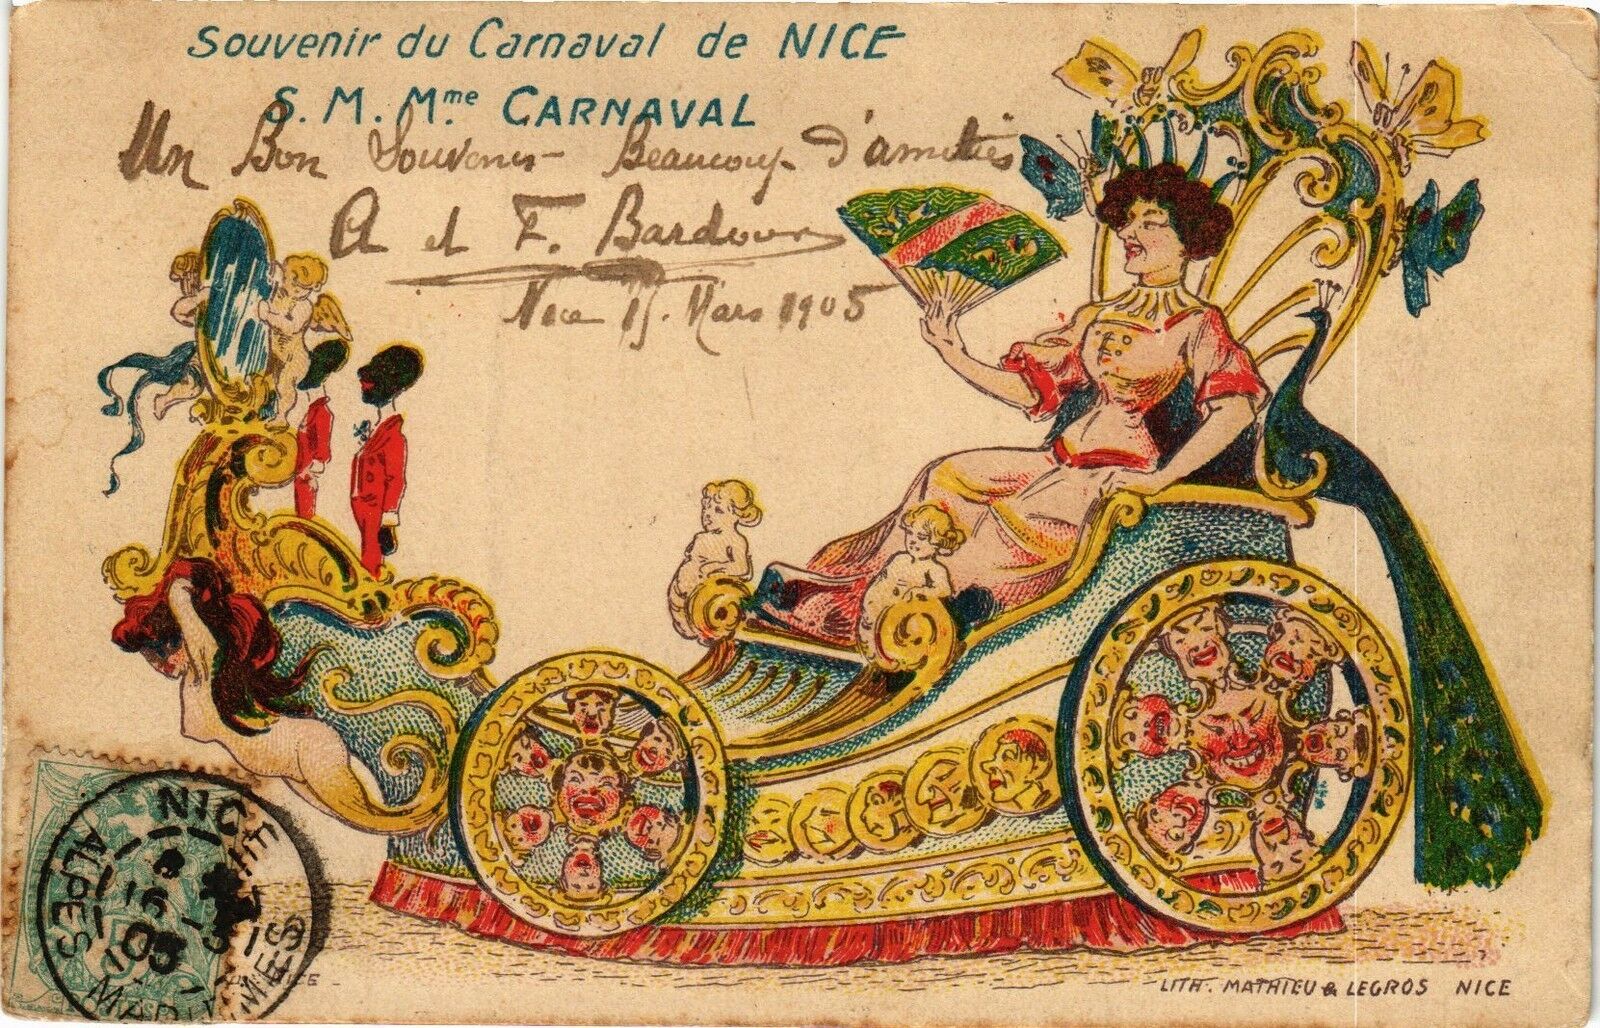 Souvenir du Carnaval de NICE
S. M. Mme CARNAVAL
Un Bon Souvenir Beaucoup d'amitiés
A et F. Bardoux
Nice 15. Mars 1905
NICE
ALPES MARITIMES
16
05
LITH. MATHIEU & LEGROS NICE